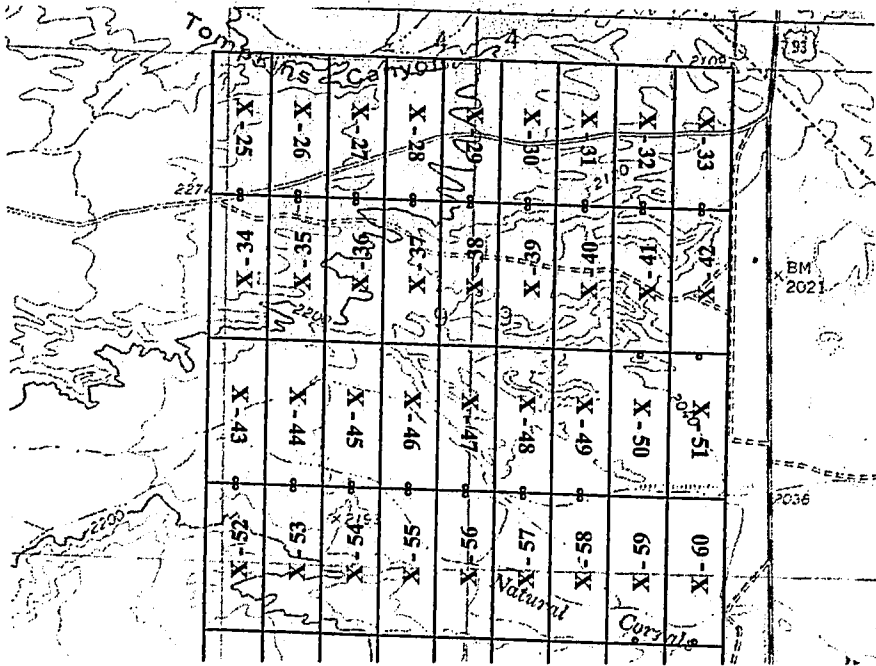 Tompkins Canyon
4 4
2109
93
X - 25
X - 26
X - 27
X - 28
X - 29
X - 30
X - 31
X - 32
X - 33
227
X - 34
X - 35
X - 36
X - 37
X - 38
X - 39
X - 40
X - 41
X - 42
BM
2021
2200
9 9
X - 43
X - 44
X - 45
X - 46
X - 47
X - 48
X - 49
X - 50
X - 51
2200
X 2193
2036
X - 52
X - 53
X - 54
X - 55
X - 56
X - 57
X - 58
X - 59
X - 60
Natural
Corrals